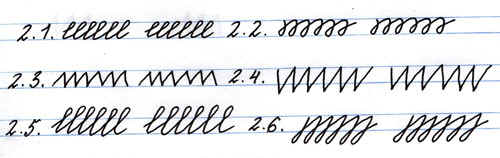 2.1. 2.2.
2.3. 2.4.
2.5. 2.6.